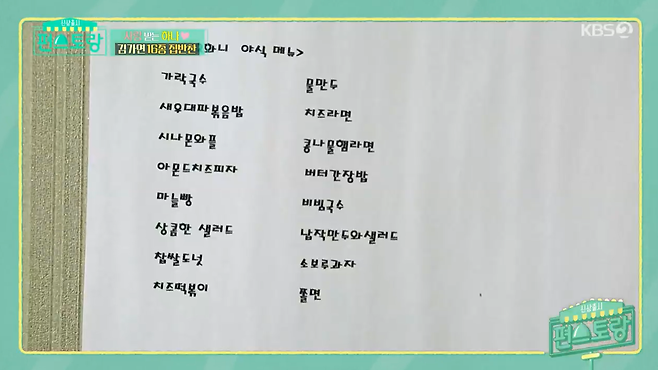 신상출시
편스토랑
사랑 받는 화니♥
김가연 16종 집반찬
KBS2
화니 야식 메뉴>
가락국수 물만두
새우대파볶음밥 치즈라면
시나몬와플 콩나물햄라면
아몬드치즈피자 버터간장밥
마늘빵 비빔국수
상큼한 샐러드 납작만두와샐러드
찹쌀도넛 소보루과자
치즈떡볶이 쫄면
신상출시
편스토랑